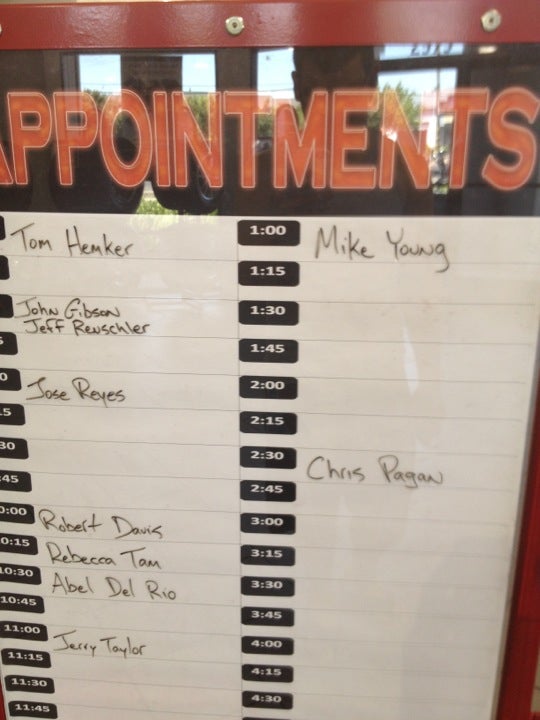 APPOINTMENTS
Tom Hemker
John Gibson
Jeff Reuschler
0 Jose Reyes
30
45
0:00 Robert Davis
0:15 Rebecca Tam
10:30 Abel Del Rio
10:45
11:00 Jerry Taylor
11:15
11:30
11:45
1:00 Mike Young
1:15
1:30
1:45
2:00
2:15
2:30 Chris Pagan
2:45
3:00
3:15
3:30
3:45
4:00
4:15
4:30